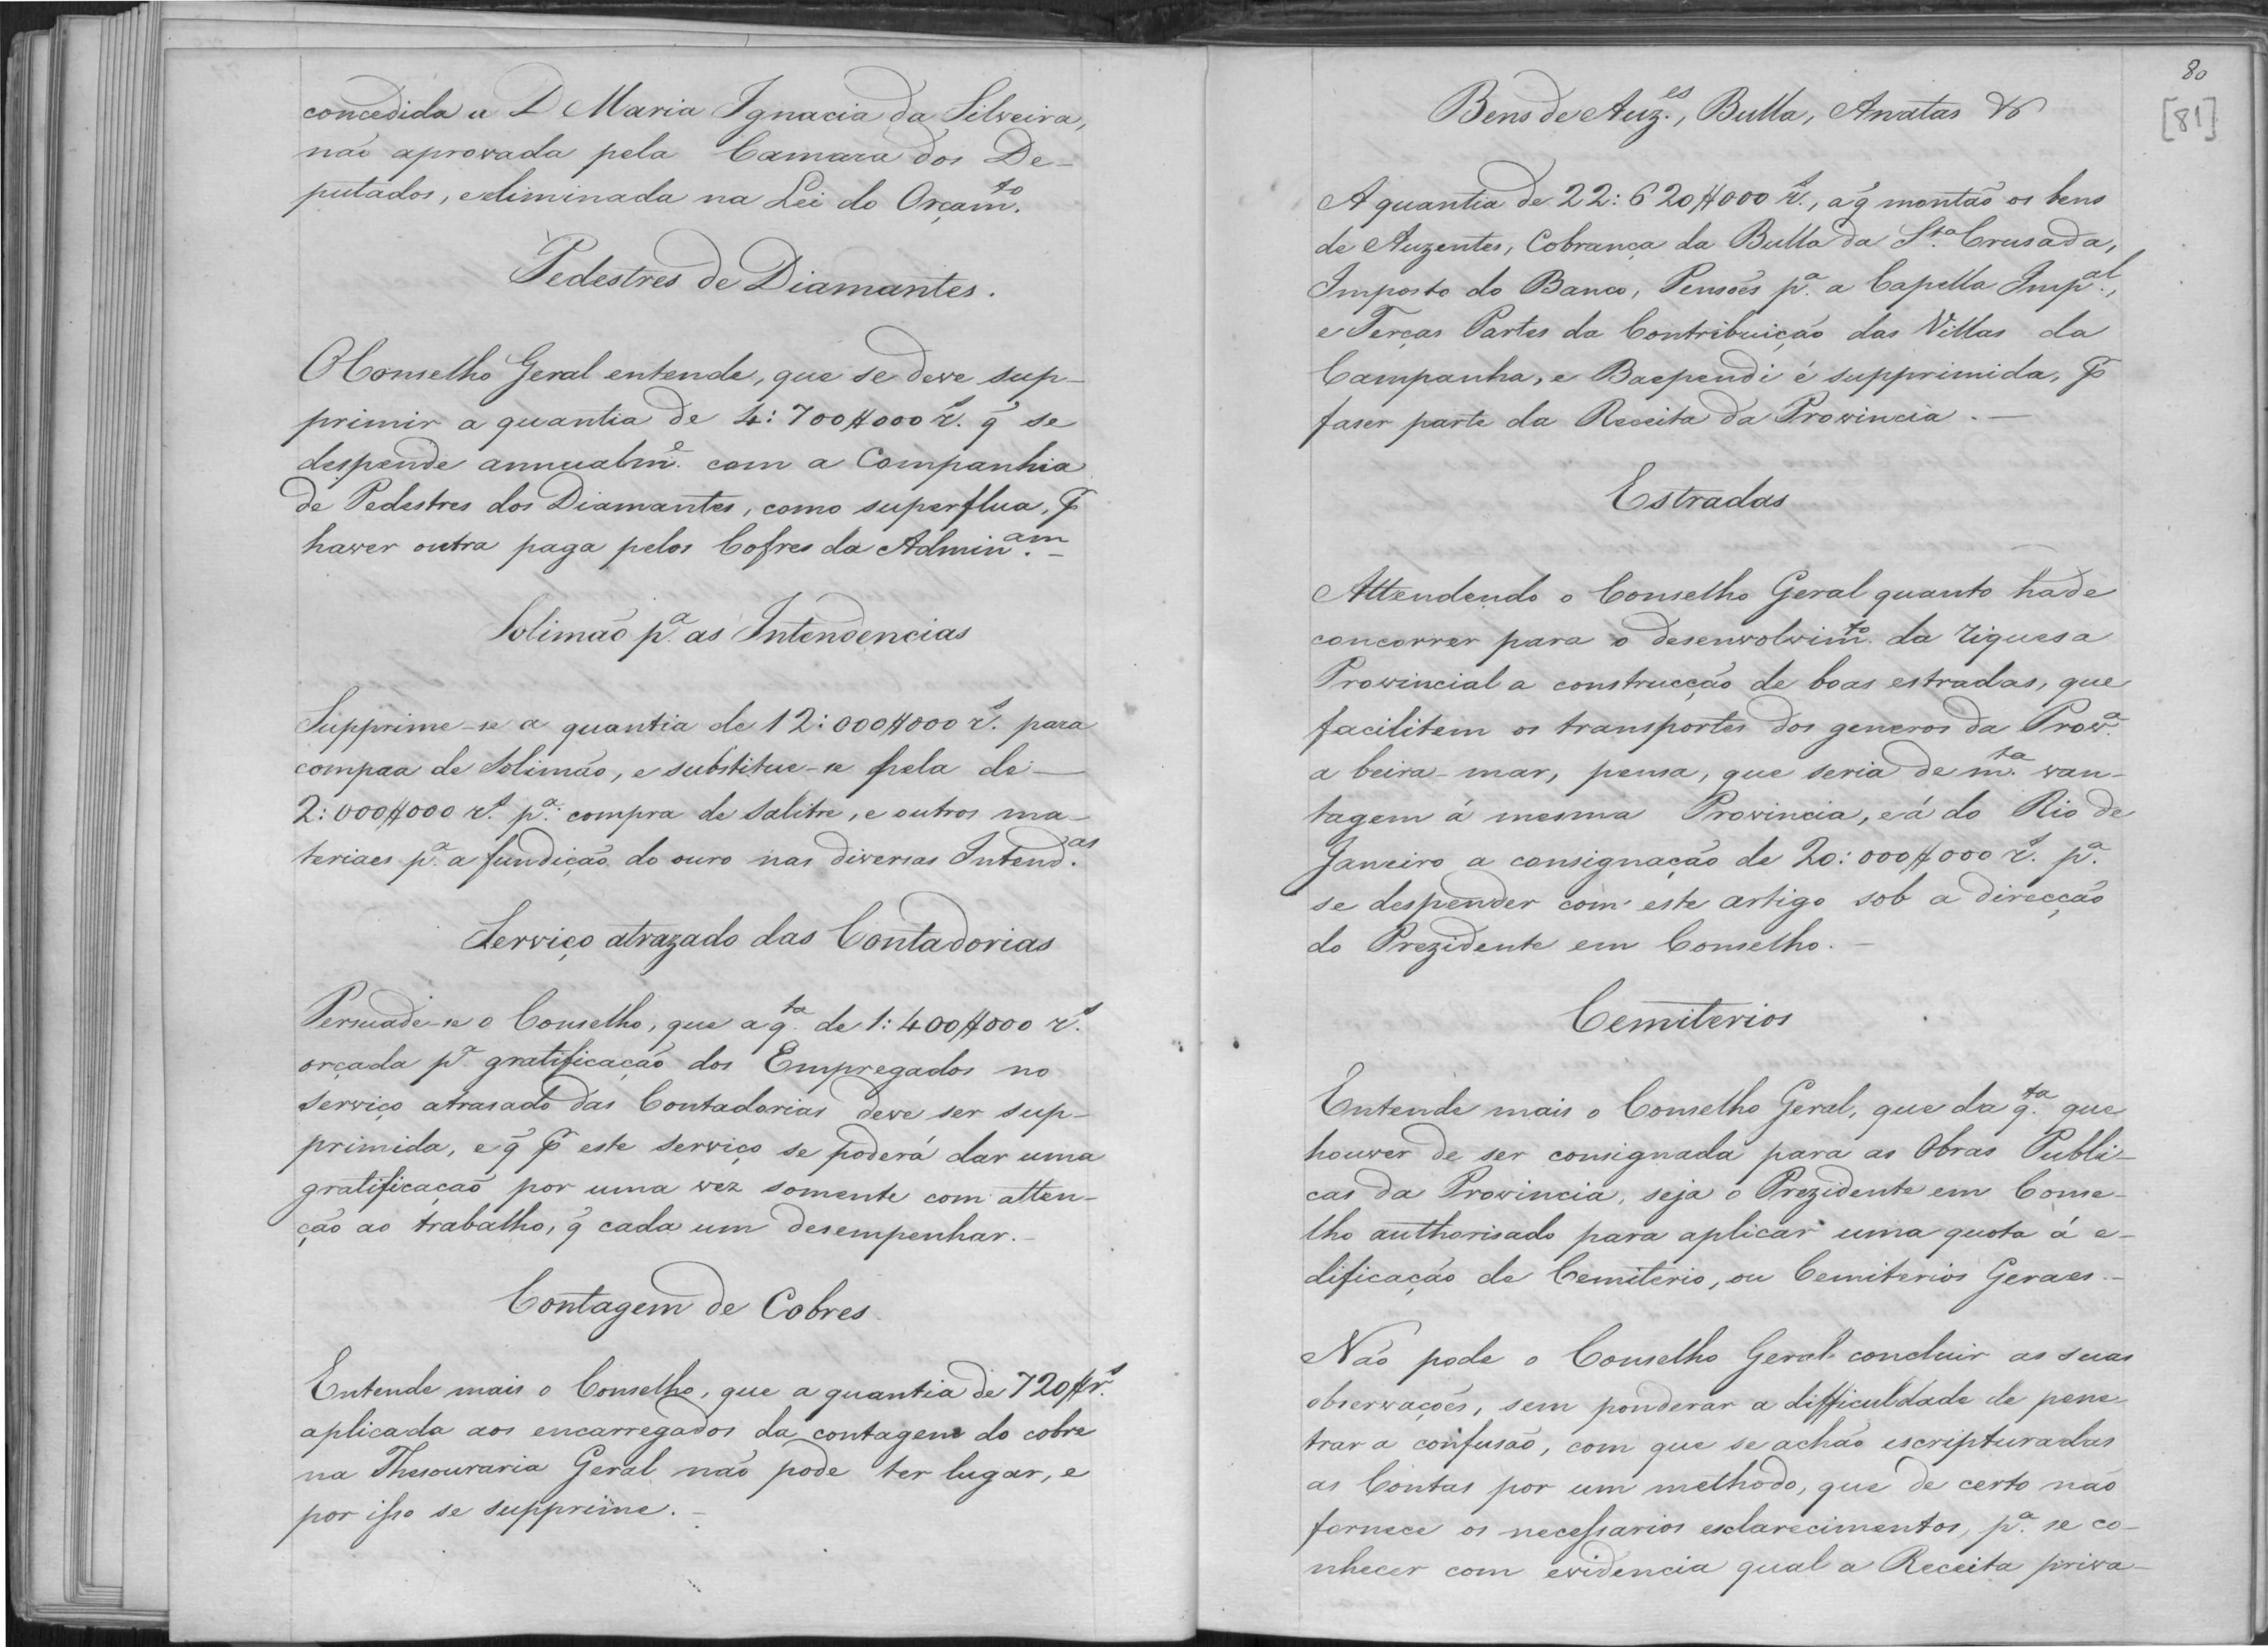 concedida a D Maria Ignacia da Silveira,
não aprovada pela Camara dos De-
putados, e eliminada na Lei do Orçam.to
Pedestres de Diamantes.
O Conselho Geral entende, que se deve sup-
primir a quantia de 4:700$000 r.s q̃ se
despende annualm.e com a Companhia
de Pedestres dos Diamantes, como superflua, p̃
haver outra paga pelos Cofres da Admin.am-
Solimão p.a as Intendencias
Supprime-se a quantia de 12:000$000 r.s para
compra de Solimão, e substitue-se pela de-
2:000$000 r.s p.a compra de Salitre, e outros ma-
teriaes p.a a fundição do ouro nas diversas Intend.as
Serviço atrazado das Contadorias
Persuade-se o Conselho, que a q.ta de 1:400$000 r.s
orçada p.a gratificação dos Empregados no
Serviço atrasado das Contadorias deve ser sup-
primida, e q̃ p̃ este serviço se poderá dar uma
gratificação por uma vez somente com atten-
ção ao trabalho, q̃ cada um desempenhar.-
Contagem de Cobres
Entende mais o Conselho, que a quantia de 720$r.s
aplicada aos encarregados da contagem do cobre
na Thesouraria Geral não pode ter lugar, e
por isso se supprime.-
80
[81]
Bens de Auz.es, Bulla, Anatas &
A quantia de 22:620$000 r.s, a q̃ montão os bens
de Auzentes, Cobrança da Bulla da S.ta Crusada,
Imposto do Banco, Pensões p.a a Capella Imp.al,
e Terças Partes da Contribuição das Villas da
Campanha, e Baependi é supprimida, p̃
faser parte da Receita da Provincia.-
Estradas
Attendendo o Conselho Geral quanto hade
concorrer para o desenvolvim.to da riquesa
Provincial a construcção de boas estradas, que
facilitem os transportes dos generos da Prov.a
a beira-mar, pensa, que seria de m.ta van-
tagem á mesma Provincia, e á do Rio de
Janeiro a consignação de 20:000$000 r.s p.a
se despender com este artigo sob a direcção
do Prezidente em Conselho.-
Cemiterios
Entende mais o Conselho Geral, que da q.ta que
houver de ser consignada para as Obras Publi-
cas da Provincia, seja o Prezidente em Conse-
lho authorisado para aplicar uma quota á e-
dificação de Cemiterio, ou Cemiterios Geraes.-
Não pode o Conselho Geral concluir as suas
observações, sem ponderar a difficuldade de pene-
trar a confusão, com que se achão escripturadas
as Contas por um methodo, que de certo não
fornece os necessarios esclarecimentos, p.a se co-
nhecer com evidencia qual a Receita priva-